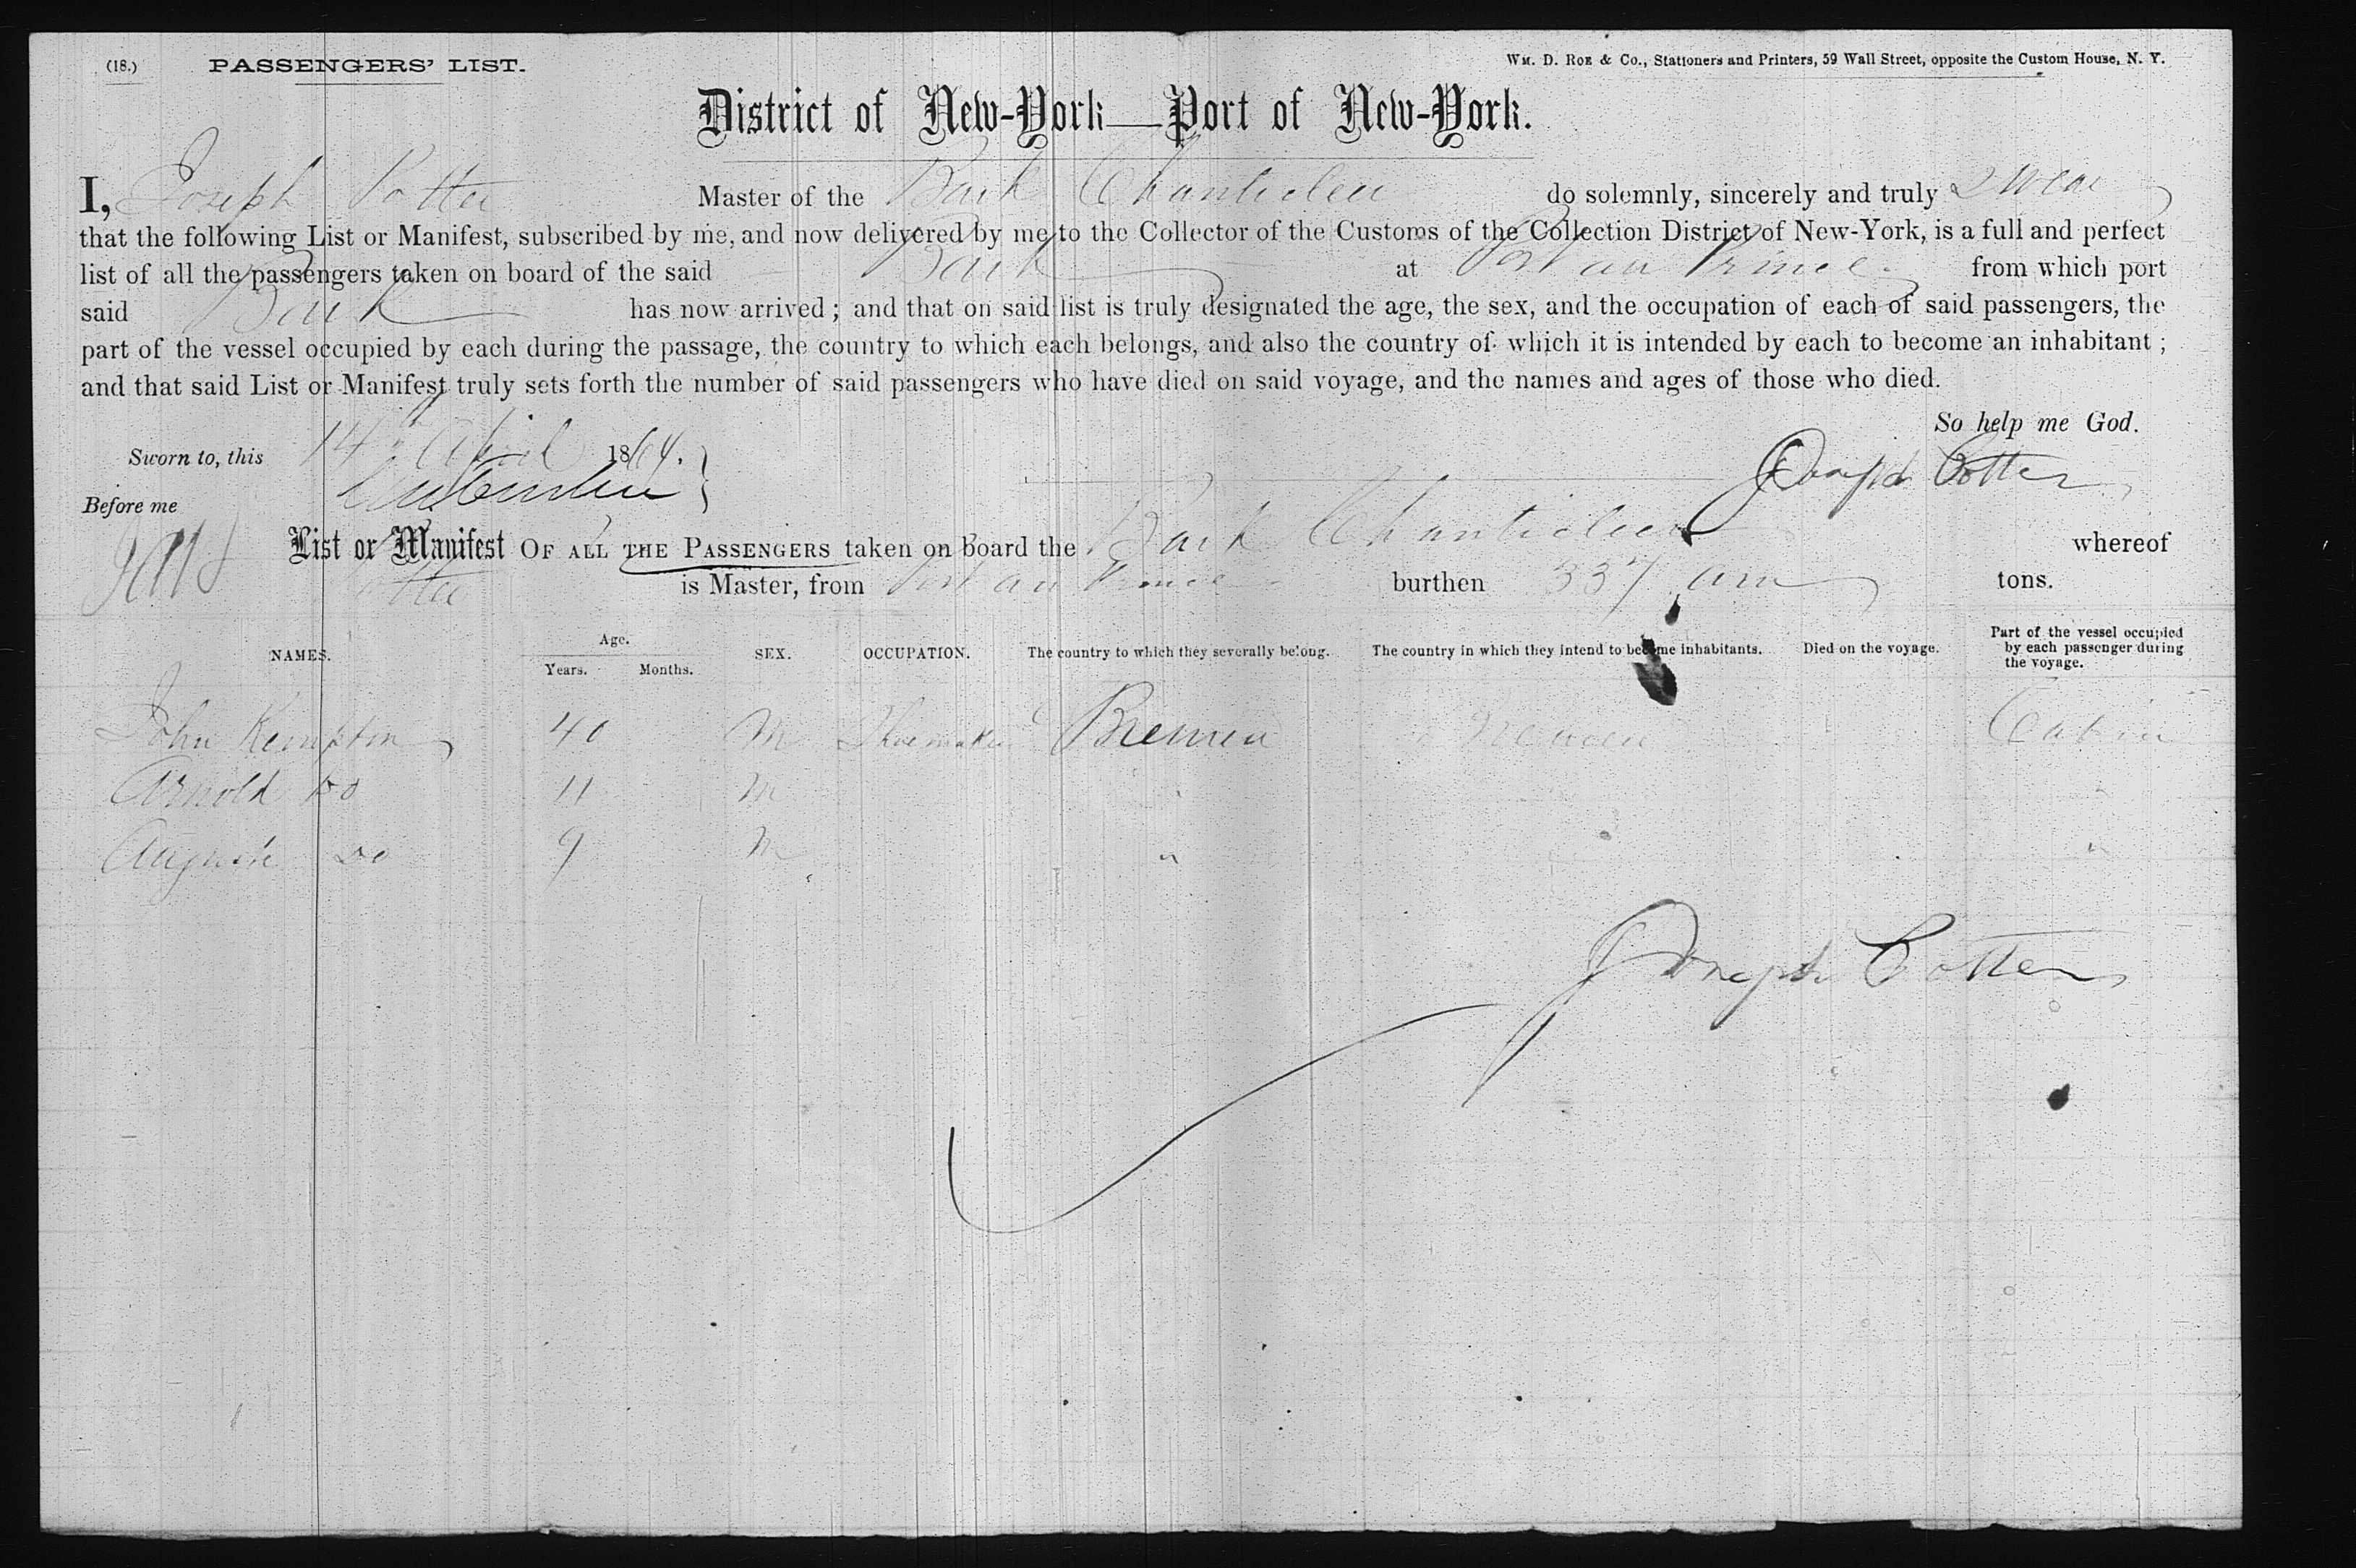 (18.) PASSENGERS' LIST. Wm. D. Roe & Co., Stationers and Printers, 59 Wall Street, opposite the Custom House, N. Y.
District of New-York—Port of New-York.
I, Joseph Potter Master of the Bark Chanticleer do solemnly, sincerely and truly Swear
that the following List or Manifest, subscribed by me, and now delivered by me to the Collector of the Customs of the Collection District of New-York, is a full and perfect
list of all the passengers taken on board of the said Bark at Port au Prince from which port
said Bark has now arrived; and that on said list is truly designated the age, the sex, and the occupation of each of said passengers, the
part of the vessel occupied by each during the passage, the country to which each belongs, and also the country of which it is intended by each to become an inhabitant;
and that said List or Manifest truly sets forth the number of said passengers who have died on said voyage, and the names and ages of those who died.
So help me God.
Sworn to, this 14th April 1864. Joseph Potter
Before me
List or Manifest OF ALL THE PASSENGERS taken on board the Bark Chanticleer whereof
Potter is Master, from Port au Prince burthen 337 tons.
NAMES. Age. Years. Months. SEX. OCCUPATION. The country to which they severally belong. The country in which they intend to become inhabitants. Died on the voyage. Part of the vessel occupied by each passenger during the voyage.
John Kempton 40 M Shoemaker Bremen Bremen Cabin
Arnold Do 11 M "
August Do 9 M " "
Joseph Potter